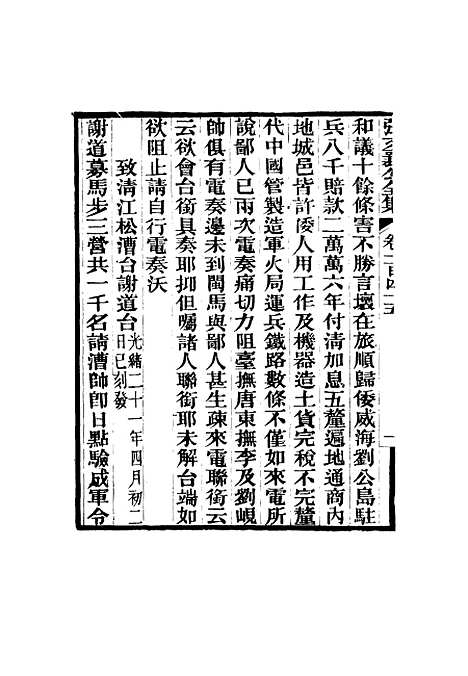 張文襄公全集 卷一百四十五 一
和議十餘條害不勝言壞在旅順歸倭威海劉公島駐
兵八千賠款二萬萬六年付清加息五釐遍地通商內
地城邑皆許倭人用工作及機器造土貨完稅不完釐
代中國管製造軍火局運兵鐵路數條不僅如來電所
說鄙人已兩次電奏痛切力阻臺撫唐東撫李及劉峴
帥俱有電奏邊未到閩馬與鄙人甚生疎來電聯銜云
云欲會台銜具奏耶抑但囑諸人聯銜耶未解台端如
欲阻止請自行電奏沃
致清江松漕台謝道台光緒二十一年四月初二
日巳刻發
謝道募馬步三營共一千名請漕帥卽日點驗成軍令